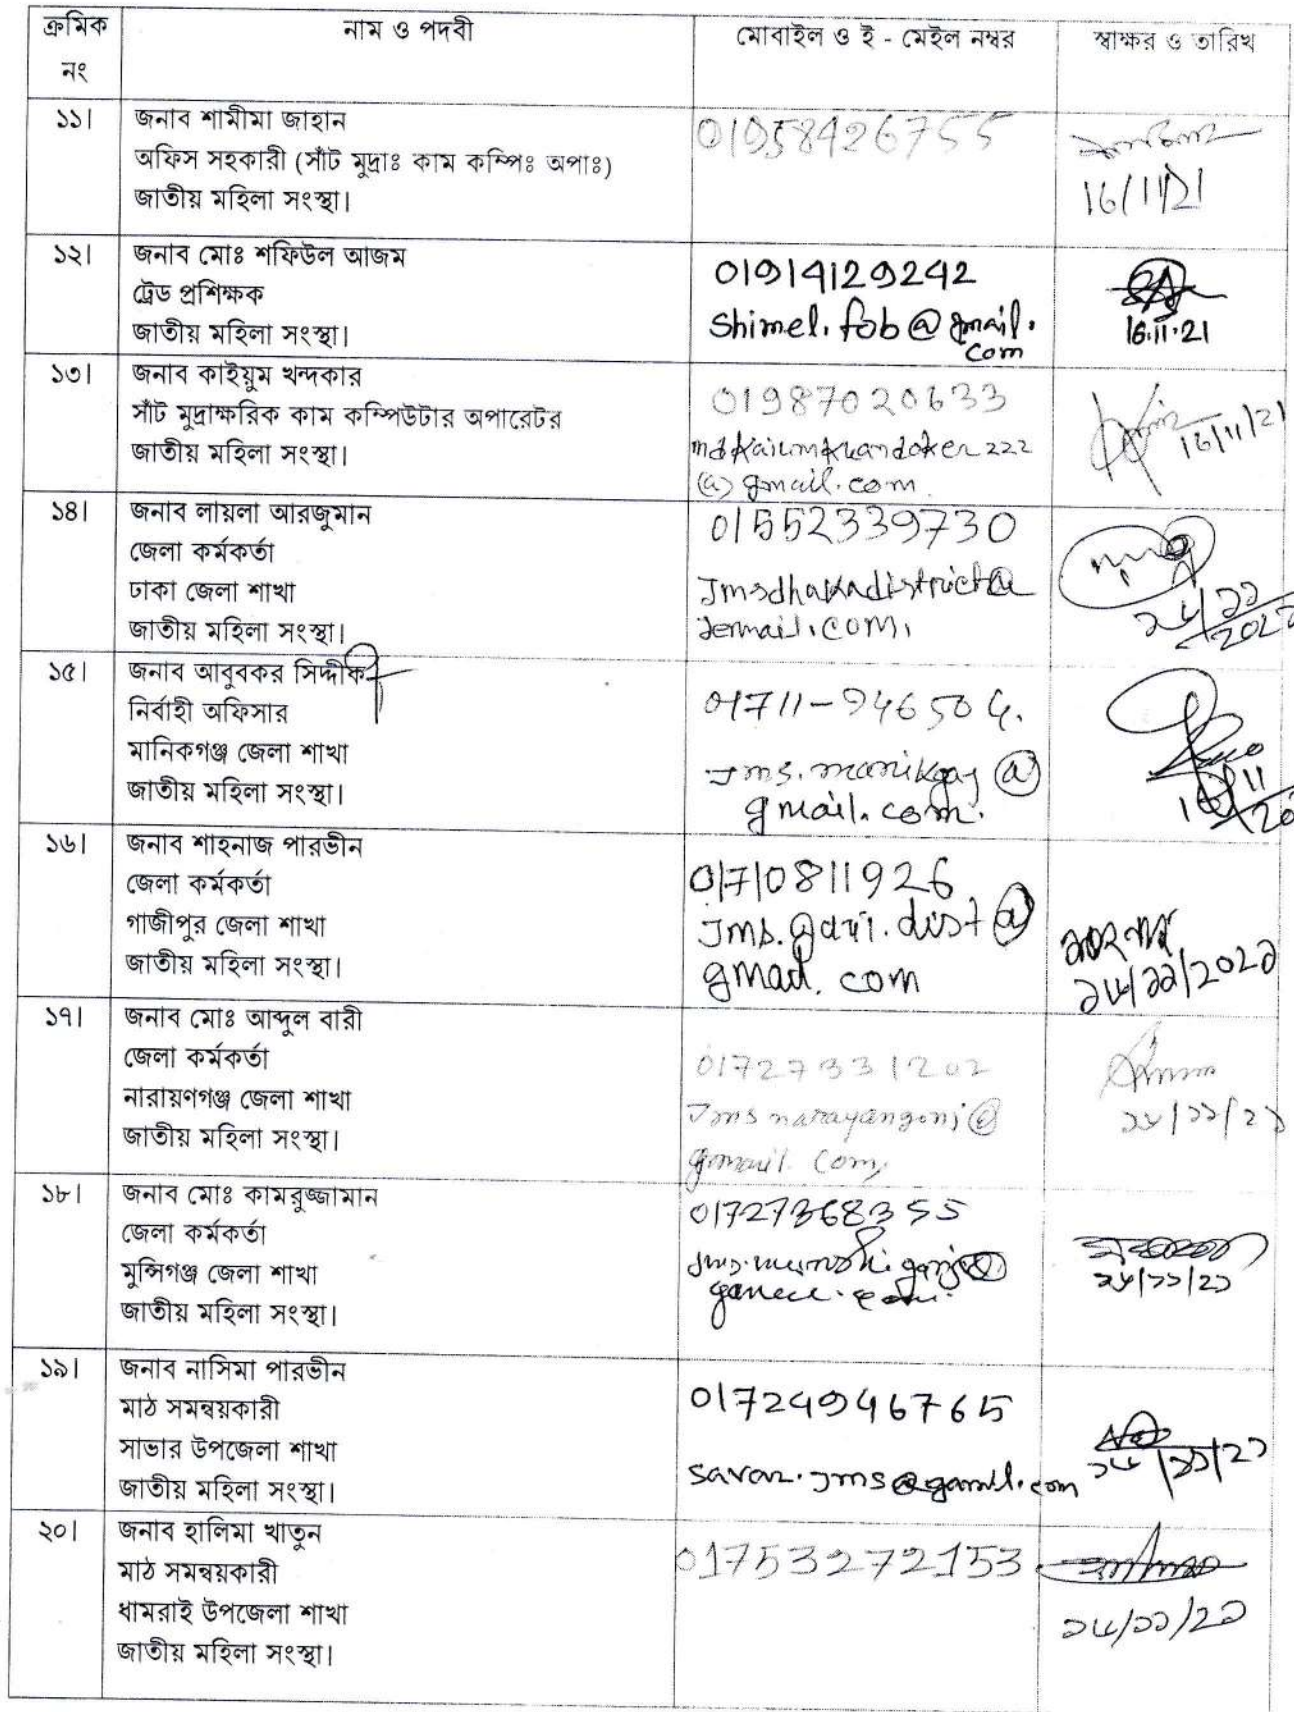 ক্রমিক নং নাম ও পদবী মোবাইল ও ই - মেইল নম্বর স্বাক্ষর ও তারিখ
১১। জনাব শামীমা জাহান
অফিস সহকারী (সাঁট মুদ্রাঃ কাম কম্পিঃ অপাঃ)
জাতীয় মহিলা সংস্থা।
01958426755
16/11/21
১২। জনাব মোঃ শফিউল আজম
ট্রেড প্রশিক্ষক
জাতীয় মহিলা সংস্থা।
01914129242
shimel.fob@gmail.
com
16.11.21
১৩। জনাব কাইয়ুম খন্দকার
সাঁট মুদ্রাক্ষরিক কাম কম্পিউটার অপারেটর
জাতীয় মহিলা সংস্থা।
01987020633
mdkaiumkhandoker222
@gmail.com
16/11/21
১৪। জনাব লায়লা আরজুমান
জেলা কর্মকর্তা
ঢাকা জেলা শাখা
জাতীয় মহিলা সংস্থা।
01552339730
Jmsdhakadistrict@
১৬/১১
১৫। জনাব আবুবকর সিদ্দীক
নির্বাহী অফিসার
মানিকগঞ্জ জেলা শাখা
জাতীয় মহিলা সংস্থা।
Jms.manikgaj@
gmail.com.
১৬। জনাব শাহনাজ পারভীন
জেলা কর্মকর্তা
গাজীপুর জেলা শাখা
জাতীয় মহিলা সংস্থা।
01710811926
Jms.gazi.dist@
gmail.com
শাহনাজ
১৬/১১/২০২১
১৭। জনাব মোঃ আব্দুল বারী
জেলা কর্মকর্তা
নারায়ণগঞ্জ জেলা শাখা
জাতীয় মহিলা সংস্থা।
01727331202
Jmsnarayangonj@
gmail.com,
১৬/১১/২১
১৮। জনাব মোঃ কামরুজ্জামান
জেলা কর্মকর্তা
মুন্সিগঞ্জ জেলা শাখা
জাতীয় মহিলা সংস্থা।
01727368355
১৬/১১/২১
১৯। জনাব নাসিমা পারভীন
মাঠ সমন্বয়কারী
সাভার উপজেলা শাখা
জাতীয় মহিলা সংস্থা।
01724946765
savar.jms@gamil.com
১৬/১১/২১
২০। জনাব হালিমা খাতুন
মাঠ সমন্বয়কারী
ধামরাই উপজেলা শাখা
জাতীয় মহিলা সংস্থা।
01753272153
১৬/১১/২১